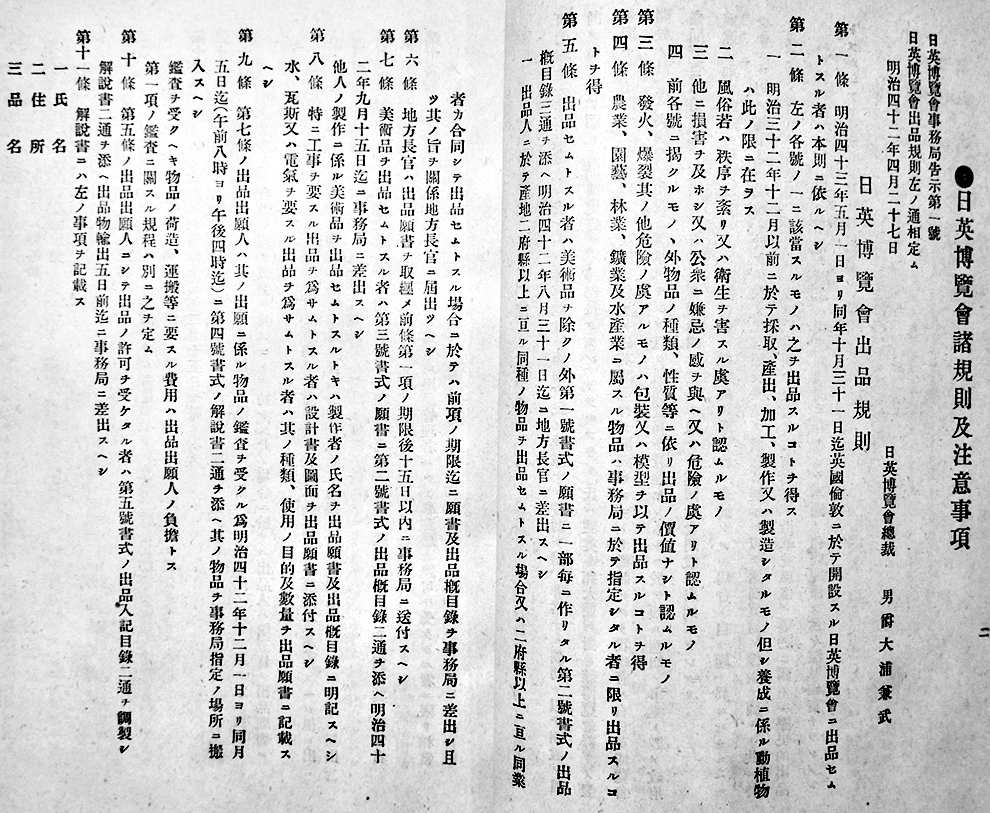 ●日英博覽會諸規則及注意事項
日英博覽會事務局吿示第一號
日英博覽會出品規則左ノ通相定ム
明治四十二年四月二十七日
日英博覽會總裁 男爵大浦兼武
日英博覽會出品規則
第一條 明治四十三年五月一日ヨリ同年十月三十一日迄英國倫敦ニ於テ開設スル日英博覽會ニ出品セム
トスル者ハ本則ニ依ルヘシ
第二條 左ノ各號ノ一ニ該當スルモノハ之ヲ出品スルコトヲ得ス
一 明治三十二年十二月以前ニ於テ採取、產出、加工、製作又ハ製造シタルモノ但シ養成ニ係ル動植物
ハ此ノ限ニ在ラス
二 風俗若ハ秩序ヲ紊リ又ハ衞生ヲ害スル虞アリト認ムルモノ
三 他ニ損害ヲ及ホシ又ハ公衆ニ嫌忌ノ感ヲ與ヘ又ハ危險ノ虞アリト認ムルモノ
四 前各號ニ揭クルモノヽ外物品ノ種類、性質等ニ依リ出品ノ價値ナシト認ムルモノ
第三條 發火、爆裂其ノ他危險ノ虞アルモノハ包裝又ハ模型ヲ以テ出品スルコトヲ得
第四條 農業、園藝、林業、鑛業及水產業ニ屬スル物品ハ事務局ニ於テ指定シタル者ニ限リ出品スルコ
トヲ得
第五條 出品セムトスル者ハ美術品ヲ除クノ外第一號書式ノ願書ニ一部每ニ作リタル第二號書式ノ出品
槪目錄三通ヲ添ヘ明治四十二年八月三十一日迄ニ地方長官ニ差出スヘシ
一 出品人ニ於テ產地二府縣以上ニ亘ル同種ノ物品ヲ出品セムトスル場合又ハ二府縣以上ニ亘ル同業
者カ合同シテ出品セムトスル場合ニ於テハ前項ノ期限迄ニ願書及出品槪目錄ヲ事務局ニ差出シ且
ツ其ノ旨ヲ關係地方長官ニ屆出ツヘシ
第六條 地方長官ハ出品願書ヲ取纒メ前條第一項ノ期限後十五日以內ニ事務局ニ送付スヘシ
第七條 美術品ヲ出品セムトスル者ハ第三號書式ノ願書ニ第二號書式ノ出品槪目錄二通ヲ添ヘ明治四十
二年九月十五日迄ニ事務局ニ差出スヘシ
他人ノ製作ニ係ル美術品ヲ出品セムトスルトキハ製作者ノ氏名ヲ出品願書及出品槪目錄ニ明記スヘシ
第八條 特ニ工事ヲ要スル出品ヲ爲サムトスル者ハ設計書及圖面ヲ出品願書ニ添付スヘシ
水、瓦斯又ハ電氣ヲ要スル出品ヲ爲サムトスル者ハ其ノ種類、使用ノ目的及數量ヲ出品願書ニ記載ス
ヘシ
第九條 第七條ノ出品出願人ハ其ノ出願ニ係ル物品ノ鑑査ヲ受クル爲明治四十二年十二月一日ヨリ同月
五日迄(午前八時ヨリ午後四時迄)ニ第四號書式ノ解說書二通ヲ添ヘ其ノ物品ヲ事務局指定ノ場所ニ搬
入スヘシ
鑑査ヲ受クヘキ物品ノ荷造、運搬等ニ要スル費用ハ出品出願人ノ負擔トス
第一項ノ鑑査ニ關スル規程ハ別ニ之ヲ定ム
第十條 第五條ノ出品出願人ニシテ出品ノ許可ヲ受ケタル者ハ第五號書式ノ出品人記目錄二通ヲ調製シ
解說書二通ヲ添ヘ出品物輸出五日前迄ニ事務局ニ差出スヘシ
第十一條 解說書ニハ左ノ事項ヲ記載ス
一 氏名
二 住所
三 品名
二